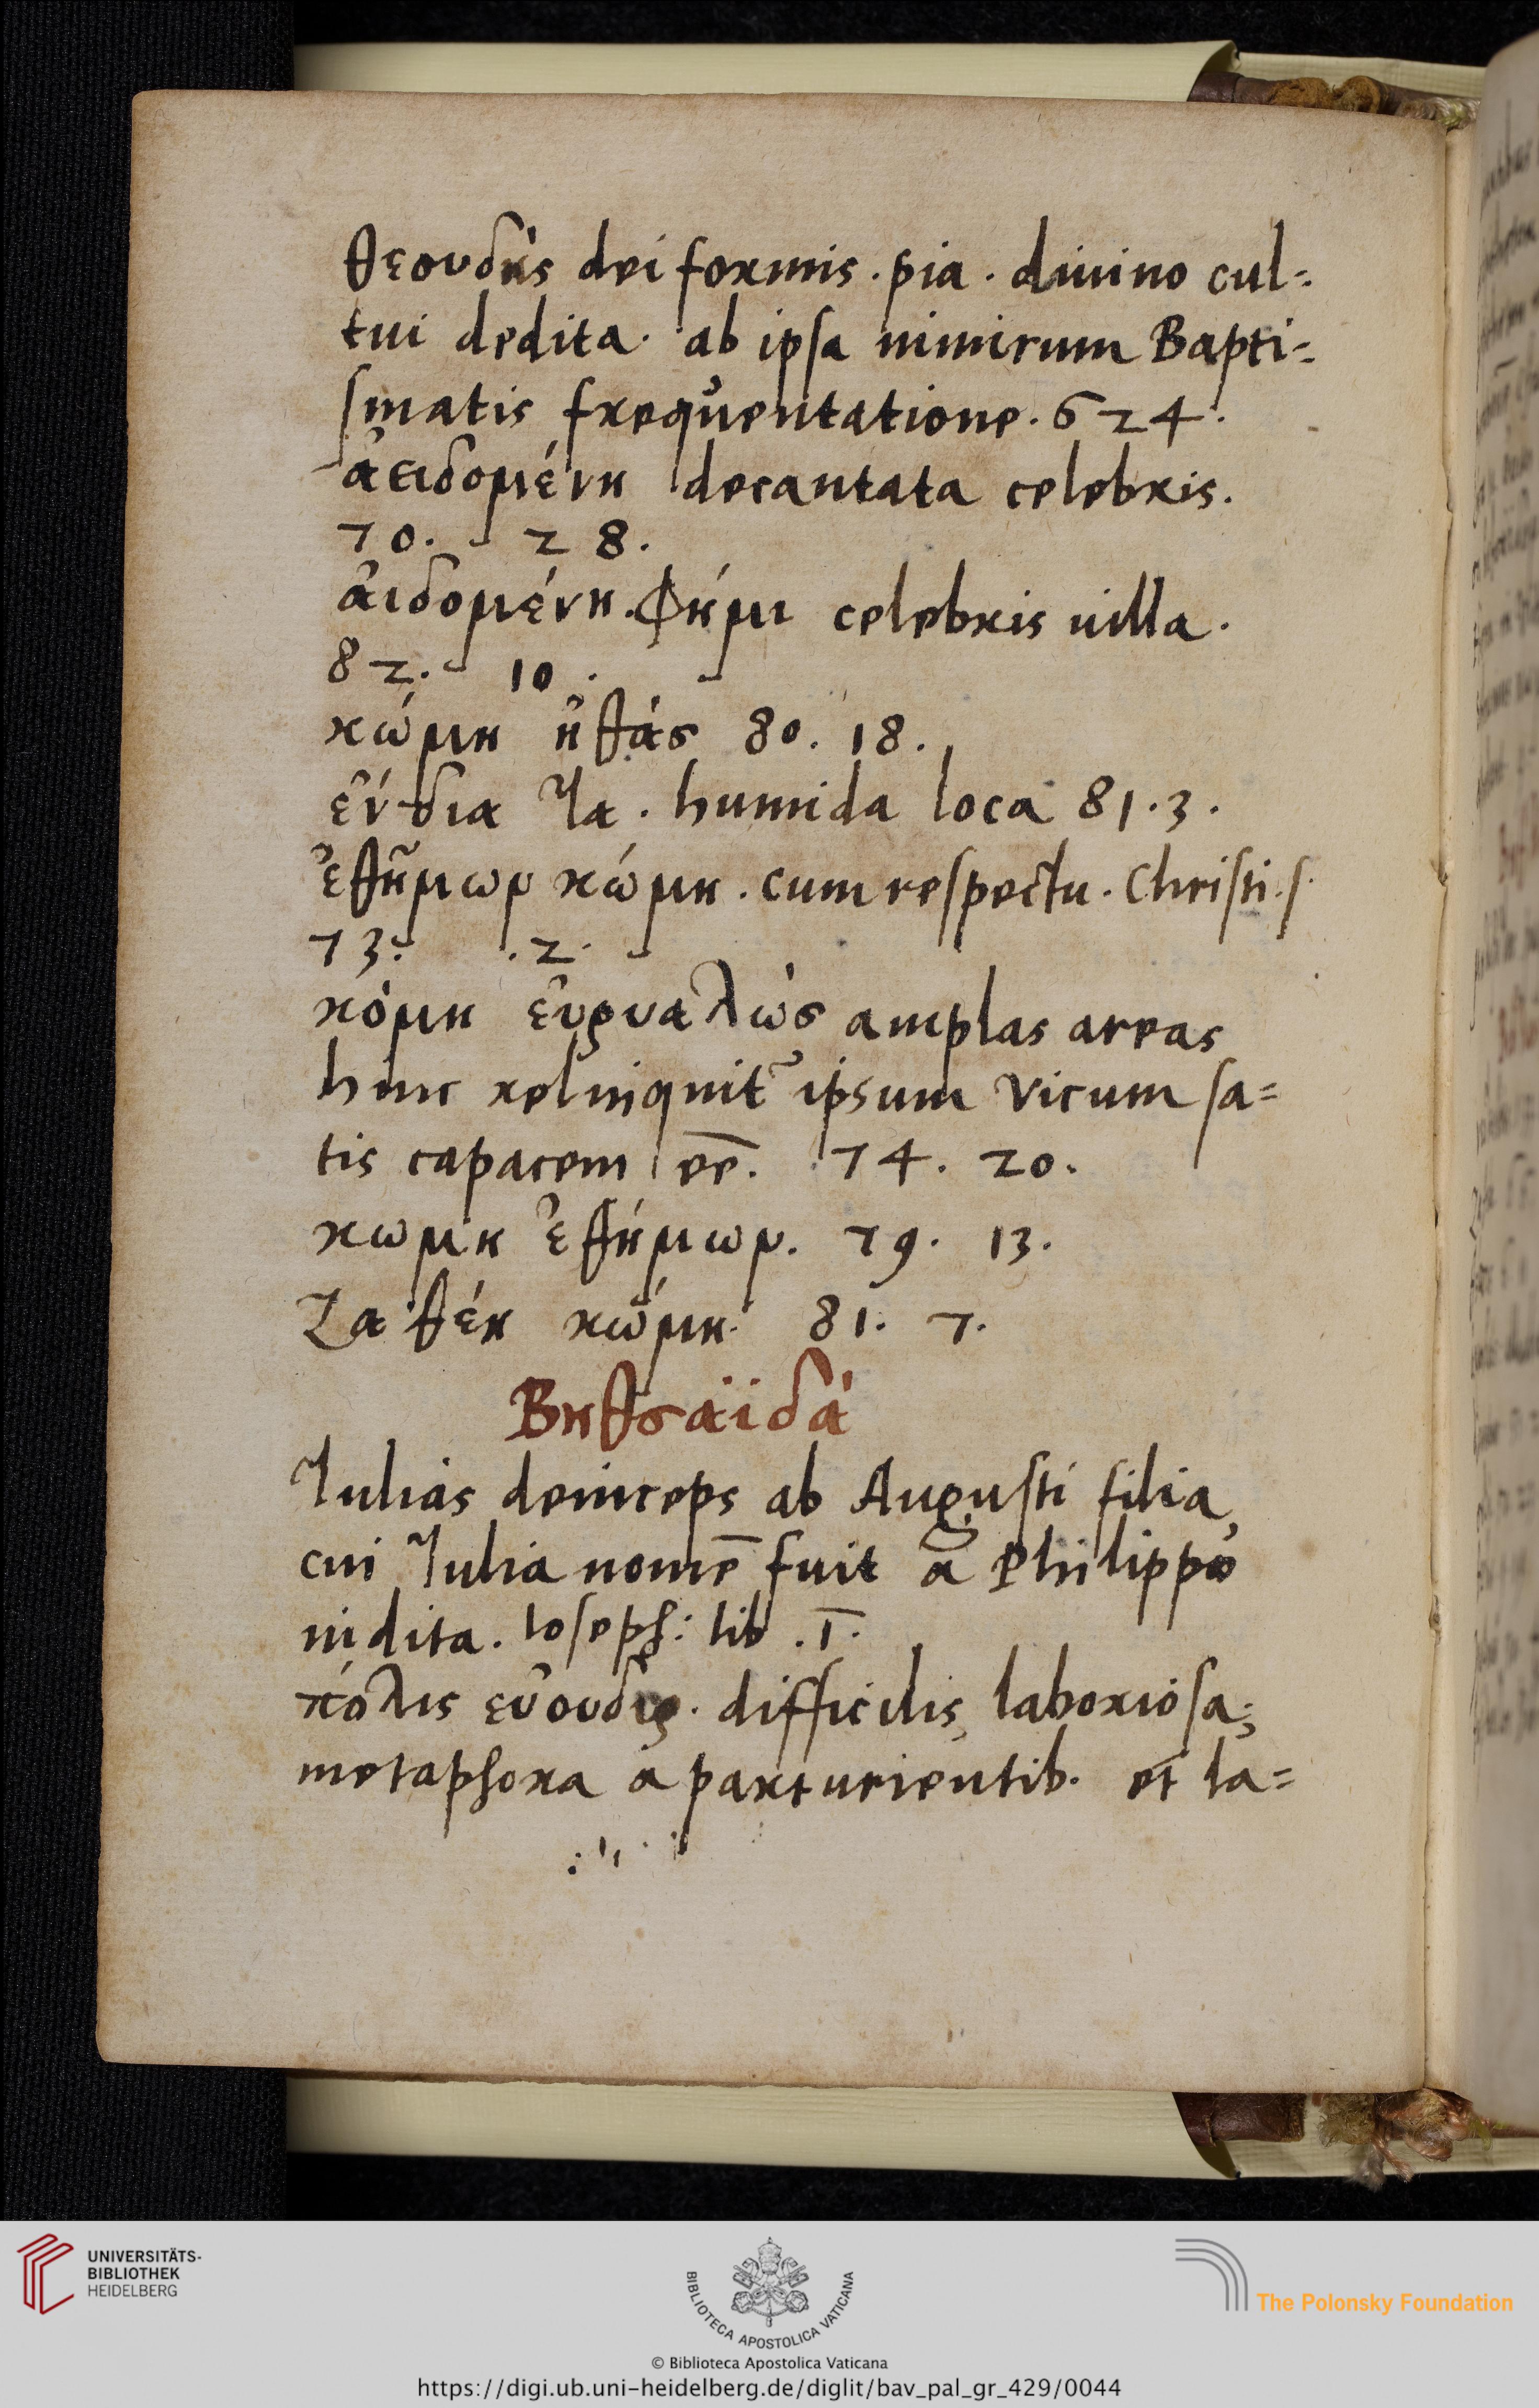 θεουδὴς dei formis. pia. diuino cul=
tui dedita. ab ipsa nimirum Bapti=
smatis frequentatione. 6 24.
ἀειδομένη decantata celebris.
70. 28.
ἀιδομένη. Φήμι celebris uilla.
82. 10.
κώμη ἠθάς 80. 18.
ἔνδια Ια. humida loca 81. 3.
ἐθῆμων κώμη. cum respectu. Christi. s.
73. 2.
κόμη εὐρυαλὼς amplas areas
hinc relinquit ipsum vicum sa=
tis capacem ēē. 74. 20.
κωμη ἐθήμων. 79. 13.
Ζαθέη κώμη. 81. 7.
Βηθσαϊδά
Iulias deinceps ab Augusti filia,
cui Iulia nomē fuit a Philippo
indita. Ioseph: lib. I.
πόλις difficilis, laboriosa;
metaphora a parturientib. et la=
UNIVERSITÄTS-
BIBLIOTHEK
HEIDELBERG
BIBLIOTECA APOSTOLICA VATICANA
The Polonsky Foundation
© Biblioteca Apostolica Vaticana
https://digi.ub.uni-heidelberg.de/diglit/bav_pal_gr_429/0044